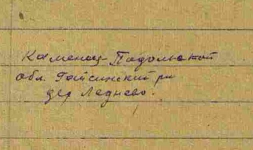 Каменец-Подольской
обл. Гайсинский р-н
дер Леднево.